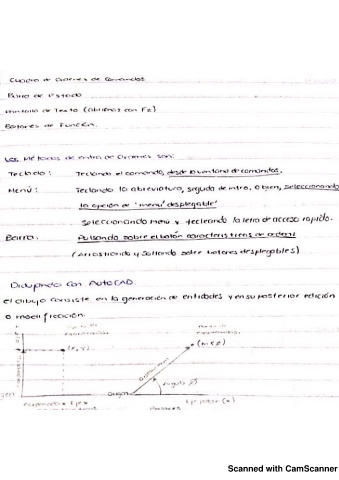 Cuadro de Ordenes de Comandos
Barra de Estado
Pantalla de Texto (abrimos con F2)
Botones de Función.
Los Métodos de entra de Ordenes son:
Teclado: Tecleando el comando, desde la ventana de comandos.
Menú: Tecleando la abreviatura, seguida de intro, o bien, seleccionando
la opción de "menú desplegable"
Seleccionando menú y tecleando la letra de acceso rapido.
Barra: Pulsando sobre el botón
(Arrastrando y Soltando sobre botones desplegables)
Dibujando Con AutoCAD.
el dibujo consiste en la generación de entidades y en su posterior edición
o modificación.
(x, y)
Origen
Angulo Ø
Eje polar (x)
Scanned with CamScanner